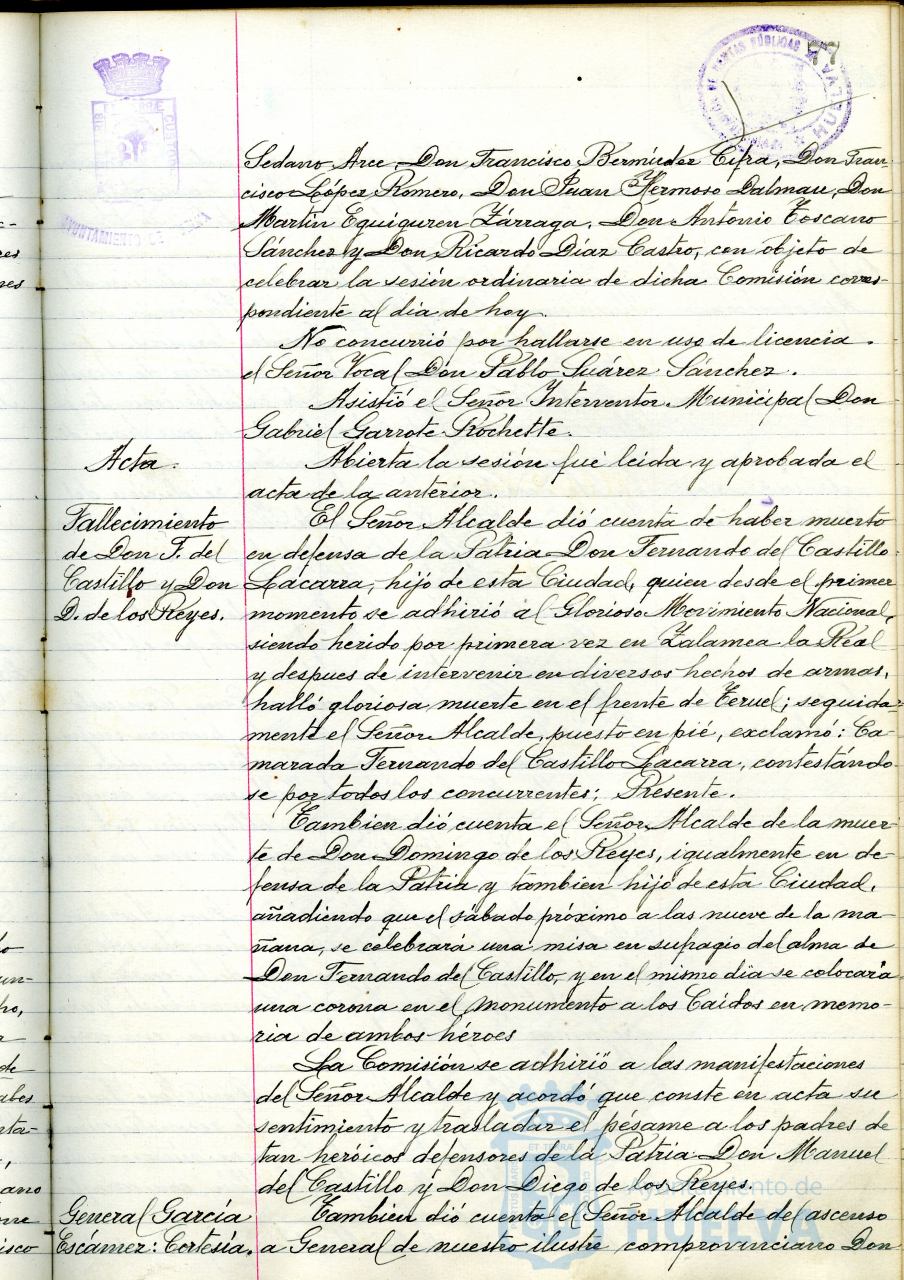 77
AYUNTAMIENTO DE
Sedano Arce, Don Francisco Bermúdez Cifra, Don Fran-
cisco López Romero, Don Juan Hermoso Dalmau, Don
Martin Equiguren Zárraga, Don Antonio Toscano
Sánchez y Don Ricardo Díaz Castro, con objeto de
celebrar la sesión ordinaria de dicha Comisión corres-
pondiente al dia de hoy.
No concurrió por hallarse en uso de licencia
el Señor Vocal Don Pablo Suárez Sánchez.
Asistió el Señor Interventor Municipal Don
Gabriel Garrote Rochette.
Acta.
Abierta la sesión fué leida y aprobada el
acta de la anterior.
Fallecimiento
de Don F. del
Castillo y Don
D. de los Reyes.
El Señor Alcalde dió cuenta de haber muerto
en defensa de la Patria Don Fernando del Castillo
Lacarra, hijo de esta Ciudad, quien desde el primer
momento se adhirió al Glorioso Movimiento Nacional,
siendo herido por primera vez en Zalamea la Real
y despues de intervenir en diversos hechos de armas,
halló gloriosa muerte en el frente de Teruel; seguida-
mente el Señor Alcalde, puesto en pié, exclamó: Ca-
marada Fernando del Castillo Lacarra, contestándo-
se por todos los concurrentes: Presente.
Tambien dió cuenta el Señor Alcalde de la muer-
te de Don Domingo de los Reyes, igualmente en de-
fensa de la Patria y tambien hijo de esta Ciudad,
añadiendo que el sábado próximo a las nueve de la ma-
ñana, se celebrará una misa en sufragio del alma de
Don Fernando del Castillo, y en el mismo dia se colocará
una corona en el monumento a los Caídos en memo-
ria de ambos héroes
La Comisión se adhirió a las manifestaciones
del Señor Alcalde y acordó que conste en acta su
sentimiento y trasladar el pésame a los padres de
tan heróicos defensores de la Patria Don Manuel
del Castillo y Don Diego de los Reyes.
General García
Escámez: Cortesía.
Tambien dió cuenta el Señor Alcalde del ascenso
a General de nuestro ilustre comprovinciano Don
Ayuntamiento de
HUELVA